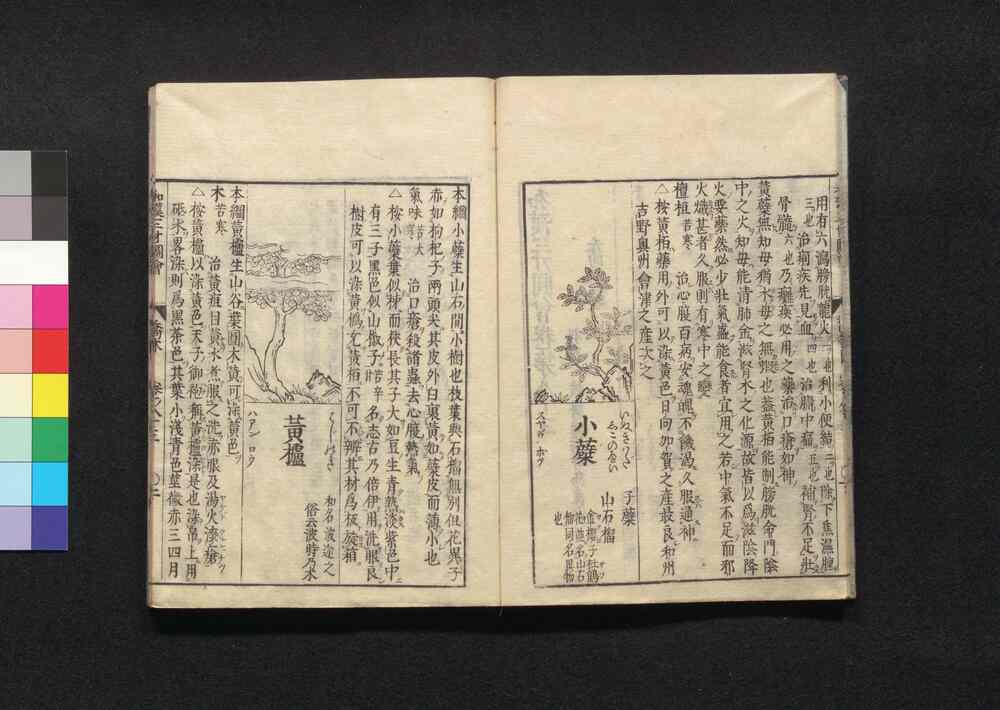 用有六瀉膀胱龍火一也利小便結二也除下焦濕腫
三也治痢疾先見血四也治臍中痛五也補腎不足壯
骨髓六也乃癱瘓必用之藥治口瘡如神
黃蘗無知母猶水母之無蝦也蓋黃栢能制膀胱命門陰
中之火知母能清肺金滋腎水之化源故皆以爲滋陰降
火要藥然必少壯氣盛能食者宜用之若中氣不足而邪
火熾甚者久服則有寒中之變
檀桓 苦寒 治心腹百病安魂魄不饑渴久服通神
△按黃栢藥用外可以染黃色日向加賀之產最良和州
吉野奥州會津之產次之
小蘗
スヤウ ホツ
子蘗
山石榴
金櫻子杜鵑
花並名山石
榴同名異物
也
本綱小蘗生山石間小樹也枝葉與石榴無別但花異子
赤如枸杞子兩頭尖其皮外白裏黃如蘗皮而薄小也
氣味 苦大寒 治口瘡殺諸蟲去心腹熱氣
△按小蘗葉似柹而狹長其子大如豆生青熟淡紫色中
有三子黑色似山椒子苦辛名志古乃倍伊用洗服良
樹皮可以染黃僞充黃栢不可不辨其材爲板旋箱
黃櫨
ハアン ロウ
和名波逹之
俗云波時乃木
本綱黃櫨生山谷葉圓木黃可染黃色
木 苦寒 治黃疸目黃水煮服之洗赤眼及湯火漆瘡
△按黃櫨以染黃色天子御袍無黃櫨染是也染帛上用
砥水畧染則爲黑茶色其葉小淺青色莖微赤三四月
和漢三才圖會
喬木
卷八十三